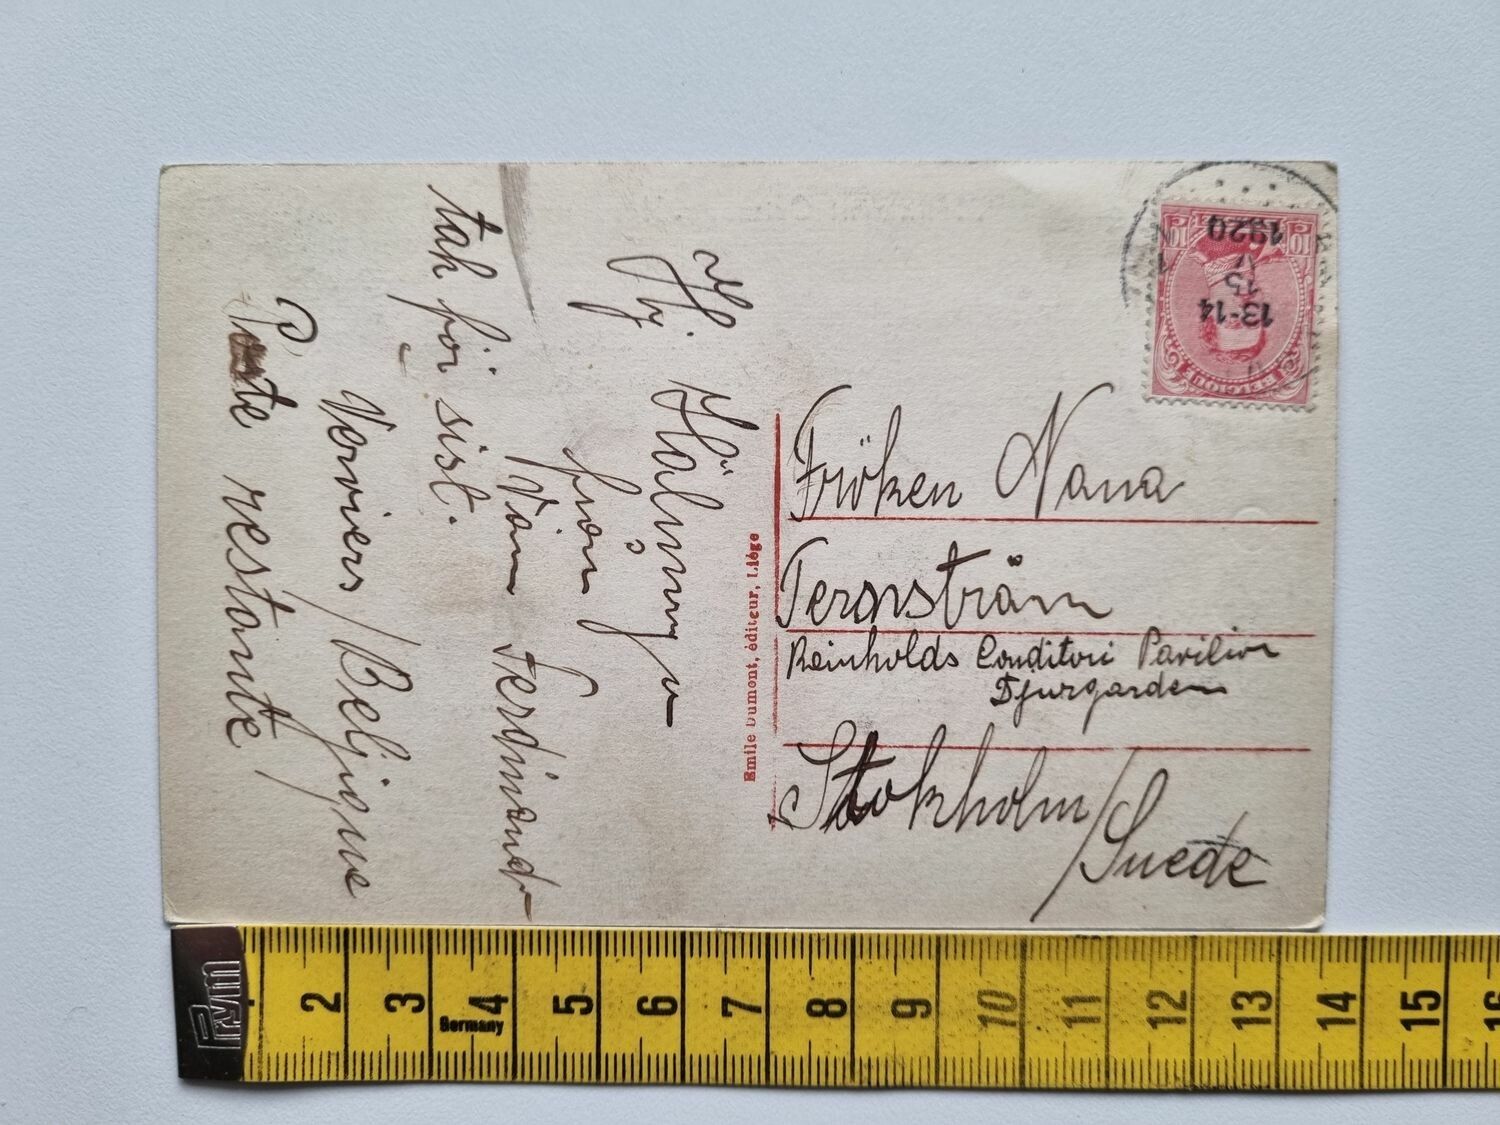 Hj. Hälning
från
Vän Ferdinand
tak för sist.
Verviers / Beljique
Poste restante /
Emile Dumont, éditeur, Liége
Fröken Nana
Ternström
Reinholds Conditori Pavilion
Djurgarden
Stokholm / Suede
BELGIQUE
10 10
13-14
15
V
1920
Prym
Germany
2 3 4 5 6 7 8 9 10 11 12 13 14 15 16